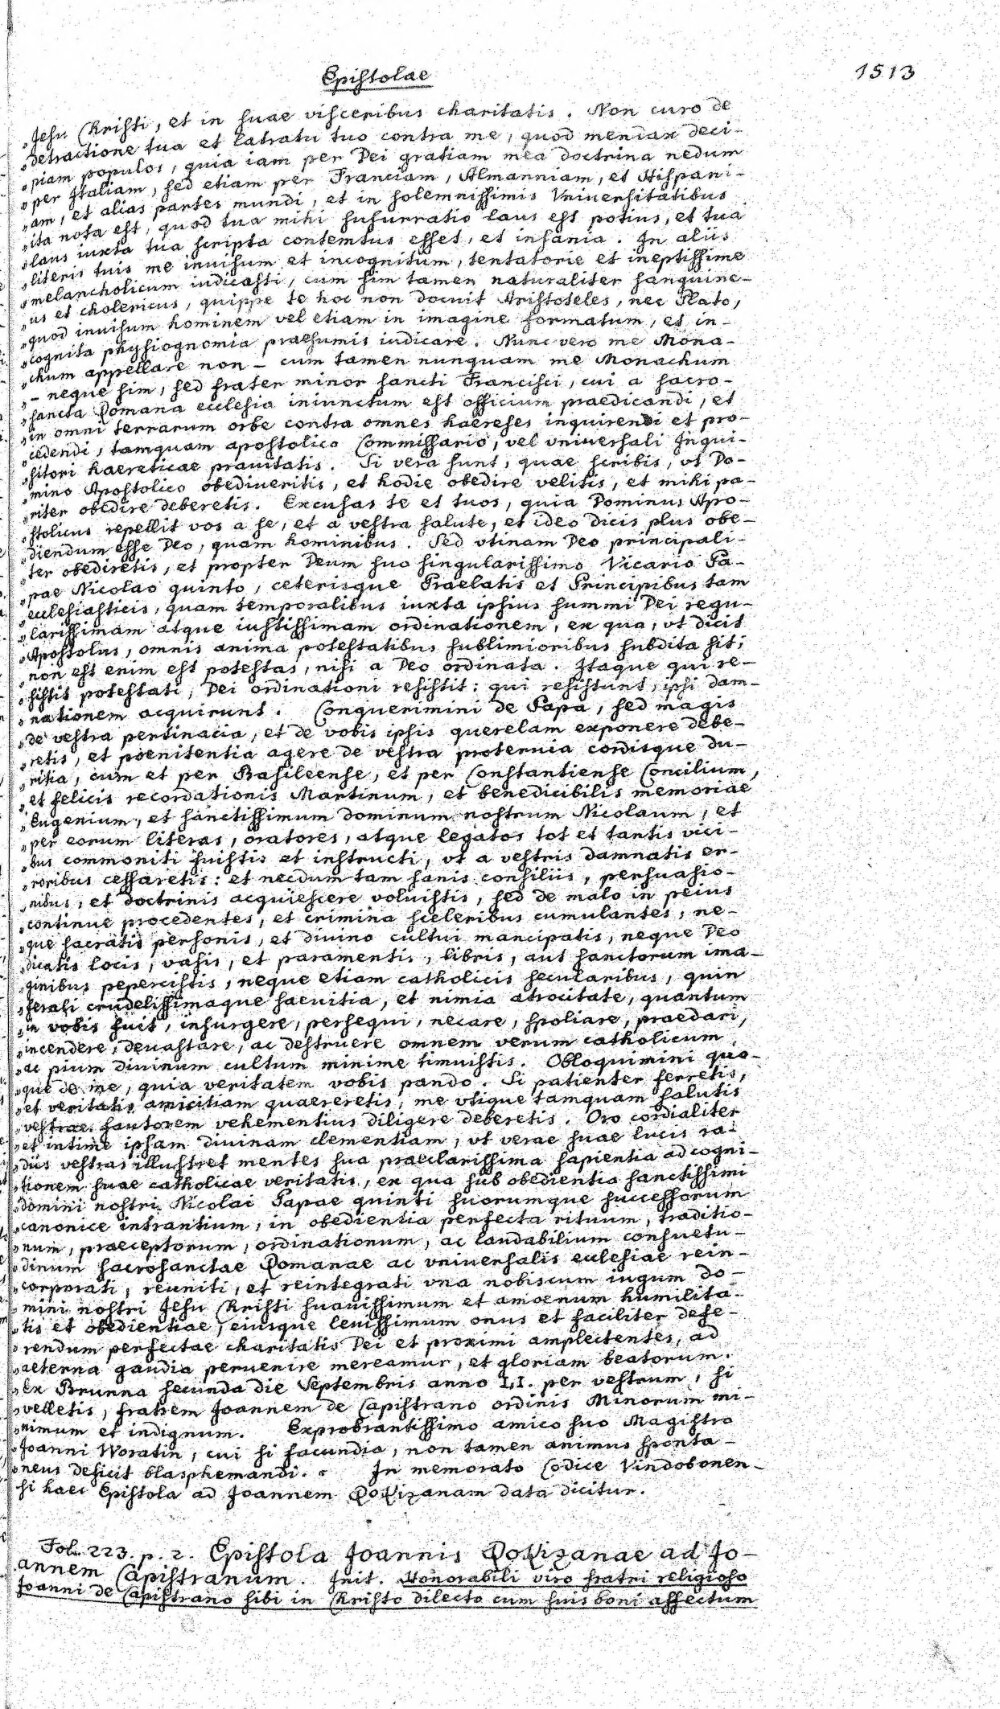 Epistolae
1513
„Jesu Christi, et in suae visceribus charitatis. Non curo de
„detractione tua et latratu tuo contra me, quod mendax deci-
„piam populos, quia iam per Dei gratiam mea doctrina nedum
„per Italiam, sed etiam per Franciam, Almanniam, et Hispani-
„am, et alias partes mundi, et in solemnissimis Vniuersitatibus
„ita nota est, quod tua mihi susurratio laus est potius, et tua
„laus iuxta tua scripta contemtus esset, et insania. In aliis
„literis tuis me inuisum et incognitum, tentatorie et ineptissime
„melancholicum iudicasti, cum sim tamen naturaliter sanguine-
„us et cholericus, quippe te hoc non docuit Aristoteles, nec Plato,
„quod inuisum hominem vel etiam in imagine formatum, et in-
„cognita physiognomia praesumis iudicare. Nunc vero me Mona-
„chum appellare non – cum tamen nunquam me Monachum
„– neque sim, sed frater minor sancti Francisci, cui a sacro-
„sancta Romana ecclesia iniunctum est officium praedicandi, et
„in omni terrarum orbe contra omnes haereses inquirendi et pro-
„cedendi, tamquam apostolico Commissario, vel vniuersali Inqui-
„sitori haereticae prauitatis. Si vera sunt, quae scribis, vt Do-
„mino Apostolico obediueritis, et hodie obedire velitis, et mihi pa-
„riter obedire deberetis. Excusas te et tuos, quia Dominus Apo-
„stolicus repellit vos a se, et a vestra salute, et ideo dicis plus obe-
„diendum esse Deo, quam hominibus. Sed vtinam Deo principali-
„ter obediretis, et propter Deum suo singularissimo Vicario Pa-
„pae Nicolao quinto, ceterisque Praelatis et Principibus tam
„ecclesiasticis, quam temporalibus iuxta ipsius summi Dei regu-
„larissimam atque iustissimam ordinationem, ex qua, vt dicit
„Apostolus, omnis anima potestatibus sublimioribus subdita sit;
„non est enim est potestas, nisi a Deo ordinata. Itaque qui re-
„sistit potestati, Dei ordinationi resistit: qui resistunt, ipsi dam-
„nationem acquirunt. Conquerimini de Papa, sed magis
„de vestra pertinacia, et de vobis ipsis querelam exponere debe-
„retis, et poenitentia agere de vestra proteruia cordisque du-
„ritia, cum et per Basileense, et per Constantiense Concilium,
„et felicis recordationis Martinum, et benedicibilis memoriae
„Eugenium, et sanctissimum dominum nostrum Nicolaum, et
„per eorum literas, oratores, atque legatos tot et tantis vici-
„bus commoniti fuistis et instructi, vt a vestris damnatis er-
„roribus cessaretis: et necdum tam sanis consiliis, persuasio-
„nibus, et doctrinis acquiescere voluistis, sed de malo in peius
„continue procedentes, et crimina sceleribus cumulantes, ne-
„que sacratis personis, et diuino cultui mancipatis, neque Deo
„dicatis locis, vasis, et paramentis, libris, aut sanctorum ima-
„ginibus pepercistis, neque etiam catholicis secularibus, quin
„ferali crudelissimaque saeuitia, et nimia atrocitate, quantum
„in vobis fuit, insurgere, persequi, necare, spoliare, praedari,
„incendere, deuastare, ac destruere omnem verum catholicum,
„ac pium diuinum cultum minime timuistis. Obloquimini quo-
„que de me, quia veritatem vobis pando. Si patienter ferretis,
„et veritatis amicitiam quaereretis, me vtique tamquam salutis
„vestrae fautorem vehementius diligere deberetis. Oro cordialiter
„et intime ipsam diuinam clementiam, vt verae suae lucis ra-
„diis vestras illustret mentes sua praeclarissima sapientia ad cogni-
„tionem suae catholicae veritatis, ex qua sub obedientia sanctissimi
„domini nostri Nicolai Papae quinti suorumque successorum
„canonice intrantium, in obedientia perfecta rituum, traditio-
„num, praeceptorum, ordinationum, ac laudabilium consuetu-
„dinum sacrosanctae Romanae ac vniuersalis ecclesiae rein-
„corporati, reuniti, et reintegrati vna nobiscum iugum do-
„mini nostri Jesu Christi suauissimum et amoenum humilita-
„tis et obedientiae, eiusque leuissimum onus et faciliter defe-
„rendum perfectae charitatis Dei et proximi amplectentes, ad
„aeterna gaudia peruenire mereamur, et gloriam beatorum.
„Ex Brunna secunda die Septembris anno LI. per vestrum, si
„velletis, fratrem Joannem de Capistrano ordinis Minorum mi-
„nimum et indignum. Exprobrantissimo amico suo Magistro
„Joanni Woratin, cui si facundia, non tamen animus sponta-
„neus deficit blasphemandi. « In memorato Codice Vindobonen-
si haec Epistola ad Joannem Rokizanam data dicitur.
Fol. 223. p. 2. Epistola Joannis Rokizanae ad Jo-
annem Capistranum. Init. Honorabili viro fratri religioso
Joanni de Capistrano sibi in Christo dilecto cum suis boni affectum